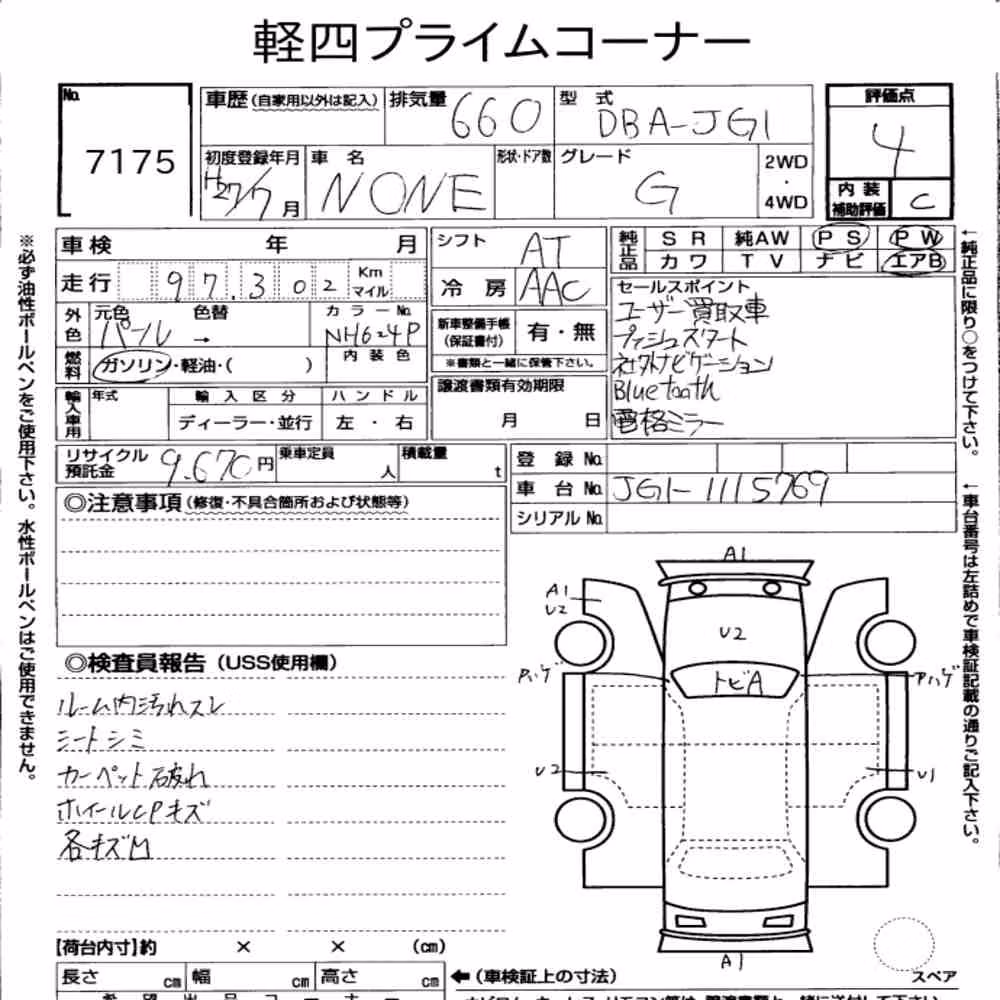 軽四プライムコーナー
No. 7175
車歴(自家用以外は記入)
排気量 660
型式 DBA-JG1
評価点 4
初度登録年月 H27/7月
車名 NONE
形状・ドア数
グレード G
2WD・4WD
内装補助評価 C
車検 年 月
シフト AT
純正品 SR 純AW PS PW
カワ TV ナビ エアB
走行 97.302 Km マイル
冷房 AAC
セールスポイント
ユーザー買取車
プッシュスタート
社外ナビゲーション
Bluetooth
電格ミラー
外色 元色 パール → 色替
カラーNo. NH624P
新車整備手帳(保証書付) 有・無
※書類と一緒に保管下さい。
燃料 ガソリン・軽油・( )
内装色
譲渡書類有効期限
月 日
輸入車用 年式 輸入区分 ハンドル
ディーラー・並行 左・右
リサイクル預託金 9.670円
乗車定員 人
積載量 t
登録No.
車台No. JG1-1115769
シリアルNo.
◎注意事項(修復・不具合箇所および状態等)
◎検査員報告(USS使用欄)
ルーム内汚れスレ
シートシミ
カーペット破れ
ホイールCPキズ
各キズ凹
A1
A1
U2
U2
Pハゲ
トビA
Pハゲ
U2
U1
A1
スペア
【荷台内寸】約 × × (cm)
長さ cm 幅 cm 高さ cm
←(車検証上の寸法)
※必ず油性ボールペンをご使用下さい。水性ボールペンはご使用できません。
←純正品に限り○をつけて下さい。
←車台番号は左詰めで車検証記載の通りご記入下さい。